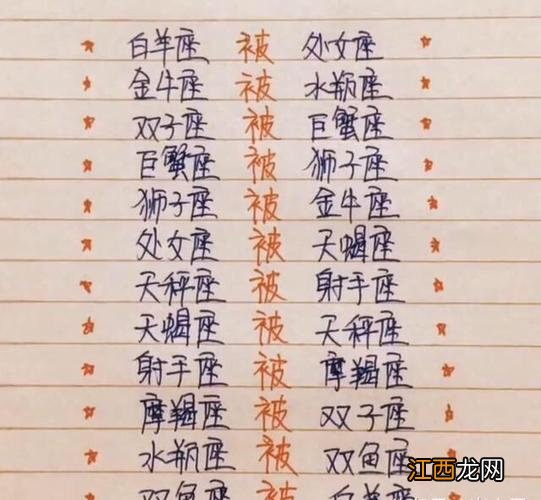 白羊座 被 处女座
金牛座 被 水瓶座
双子座 被 巨蟹座
巨蟹座 被 狮子座
狮子座 被 金牛座
处女座 被 天蝎座
天秤座 被 射手座
天蝎座 被 天秤座
射手座 被 摩羯座
摩羯座 被 双子座
水瓶座 被 双鱼座
双鱼座 被 白羊座
江西龙网